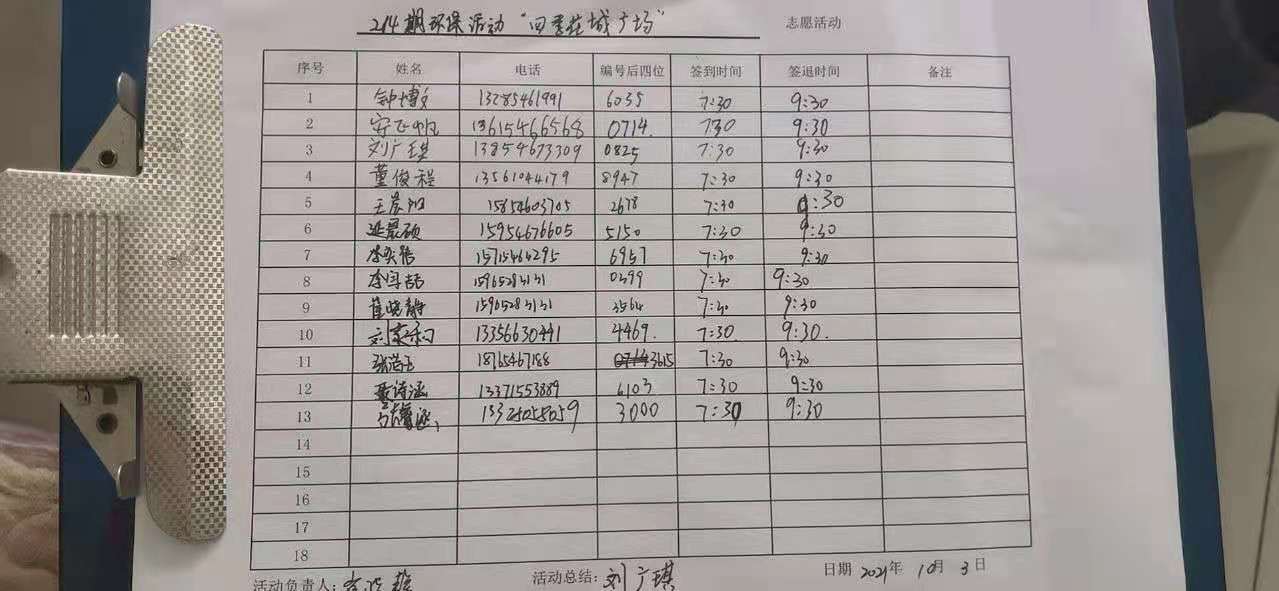 214期环保活动"四季花城广场" 志愿活动
序号 姓名 电话 编号后四位 签到时间 签退时间 备注
1 钟博文 13285461991 6035 7:30 9:30
2 安飞帆 13615466568 0714. 730 9:30
3 刘广琪 13854673309 0825 7:30 9:30
4 董俊程 13561044179 8947 7:30 9:30
5 15854603705 2678 7:30 9:30
6 延景硕 15954676605 5150 7:30 9:30
7 15715464295 6957 7:30 9:30
8 15965283131 0399 7:30 9:30
9 崔晓静 15965283131 3564 7:30 9:30
10 刘家和 13356630441 4469. 7:30. 9:30.
11 18765467188 3615 7:30 9:30
12 聂诗涵 13371553889 6103 7:30 9:30
13 3000 7:30 9:30
14
15
16
17
18
活动负责人: 活动总结: 刘广琪 日期 2021年 10月 3日